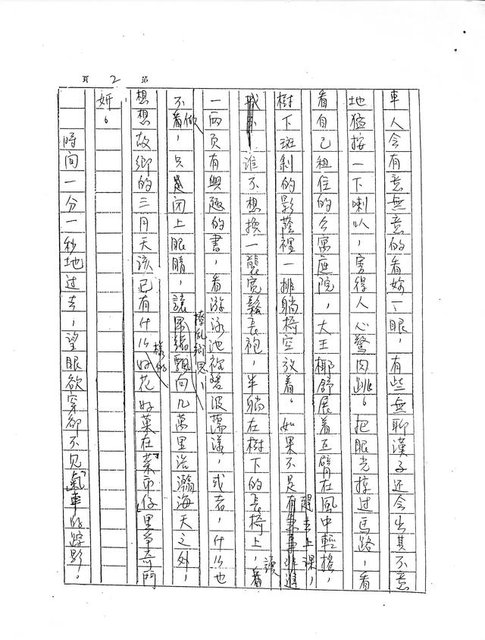 第 2 頁
車人会有意無意的看妳一眼，有些無聊漢子还会出其不意
地猛按一下喇叭，害得人心驚肉跳。把眼光掠过馬路，看
看自己租住的公寓庭院，大王椰舒展着巨臂在風中輕搖，
樹下斑剝的影蔭裡一排躺椅空放着。如果不是趕去上課，
誰不想換一襲寬鬆長袍，半躺在樹下的長椅上，讀
一兩頁有興趣的書，看游泳池裡碧波蕩漾，或者，什么也
不做，只是闭上眼睛，讓思緒飄回几萬里浩瀚海天之外，
想想故鄉的三月天該已有什么樣的好花好菜在「菜市仔」里爭奇鬥
妍。
時间一分一秒地过去，望眼欲穿卻不见車的踪影，